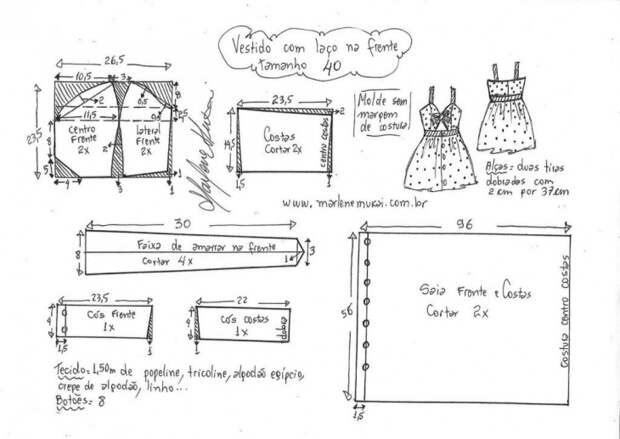 Vestido com laço na frente
tamanho 40
26,5
10,5
3
8
2
0,5
0,5
2,5
11,5
23,5
8
5
4
Centro
Frente
2x
lateral
Frente
2x
2
3
1
Marlene Mukai
23,5
2
Costas
Cortar 2x
centro costas
14,5
1,5
1
Molde sem
margem
de costura
Alças= duas tiras
dobradas com
2 cm por 37cm
www.marlenemukai.com.br
30
8
Faixa de amarrar na frente
Cortar 4x
1
3
96
56
Saia Frente e Costas
Cortar 2x
Costura centro costas
1,5
23,5
4
Cós Frente
1x
1,5
1
22
4
Cós costas
1x
dobra
1
Tecido= 1,50m de popeline, tricoline, algodão egípcio,
crepe de algodão, linho...
Botões= 8